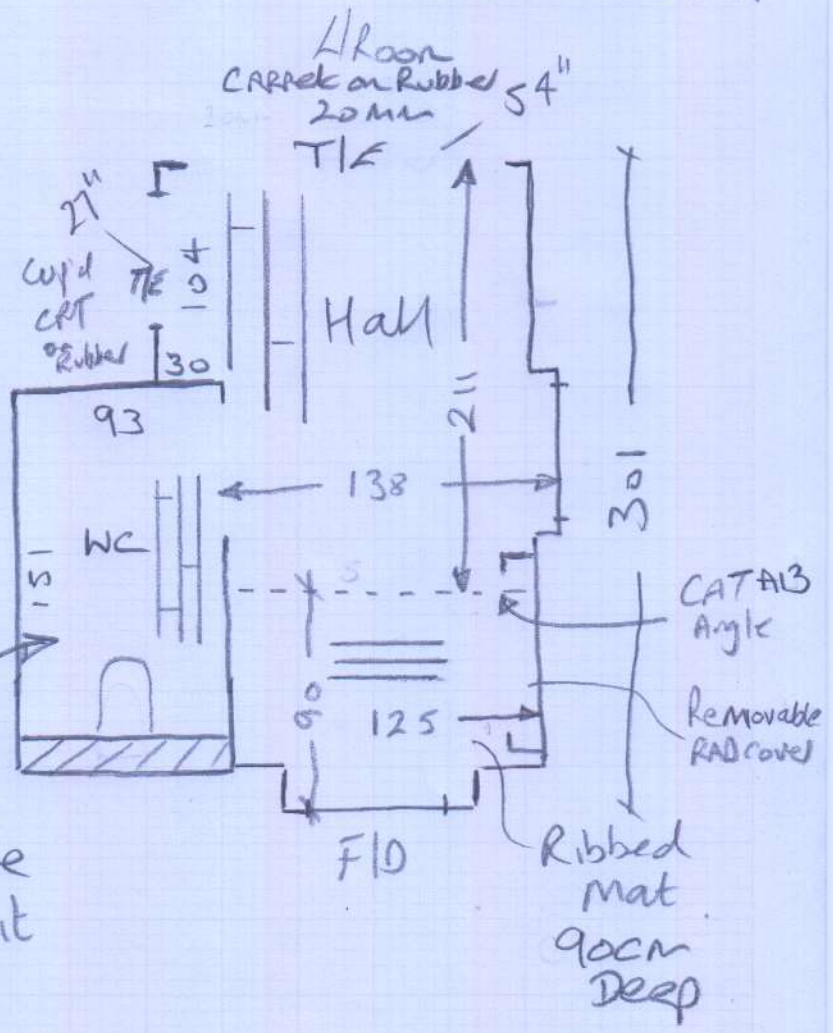 L/Room
CARPet on Rubber
20mm
T/E
54"
27"
Cup'd
CRT
on Rubber
T/E
104
30
Hall
211
301
93
138
WC
151
CAT A13
Angle
90
125
Removable
RAD cover
F/D
Ribbed
Mat
90cm
Deep